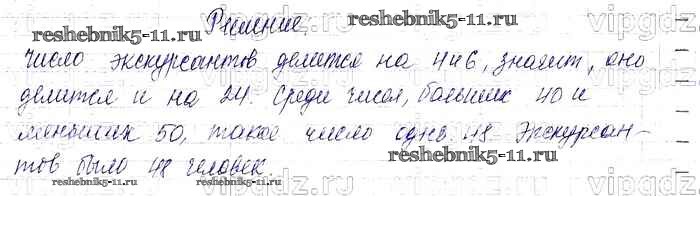 Решение
reshebnik5-11.ru
reshebnik5-11.ru
vipgdz
число экскурсантов делится на 4 и 6, значит, оно
делится и на 24. Среди чисел, больших 40 и
меньших 50, такое число одно 48 Экскурсан-
reshebnik5-11.ru
тов было 48 человек.
reshebnik5-11.ru
reshebnik5-11.ru
vipgdz.com